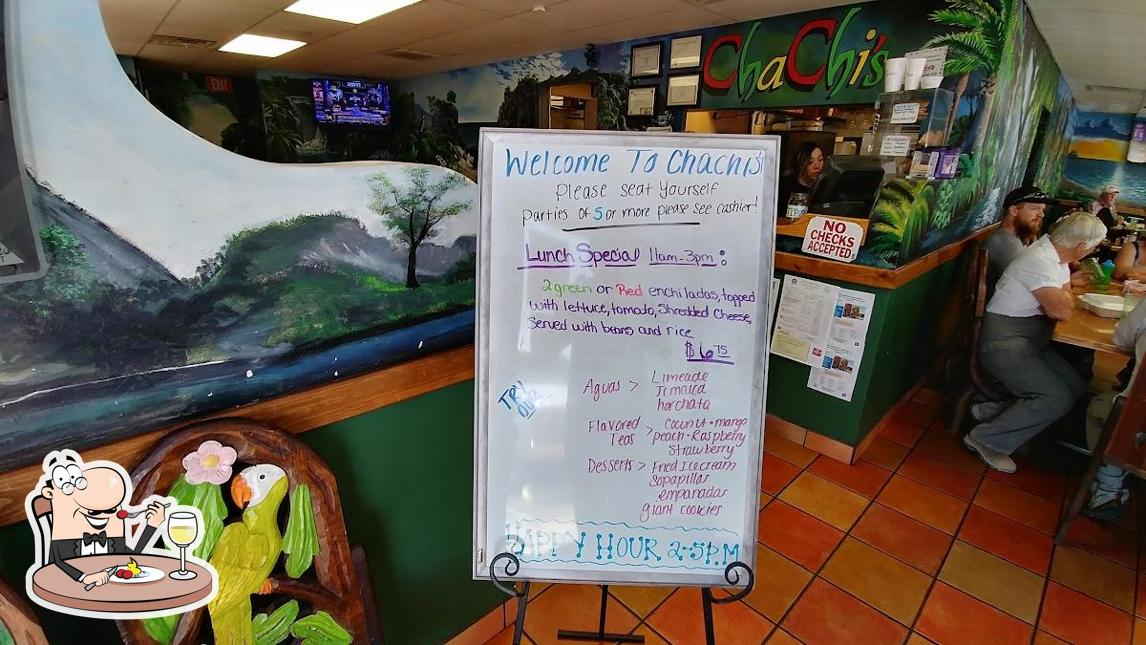 EXIT
ChaChi's
Welcome To Chachi's
Please seat Yourself
Parties of 5 or more please see cashier!
Lunch Special 11am-3pm:
2 green or Red enchiladas, topped
with lettuce, tomato, Shredded Cheese,
Served with beans and rice
$6.75
TRY OUR
Aguas > Limeade
Jimaica
horchata
Flavored Teas > Coconut • mango
peach • Raspberry
Strawberry
Desserts > Fried Icecream
Sopapillas
empanadas
giant cookies
HAPPY HOUR 2-5P.M
NO
CHECKS
ACCEPTED